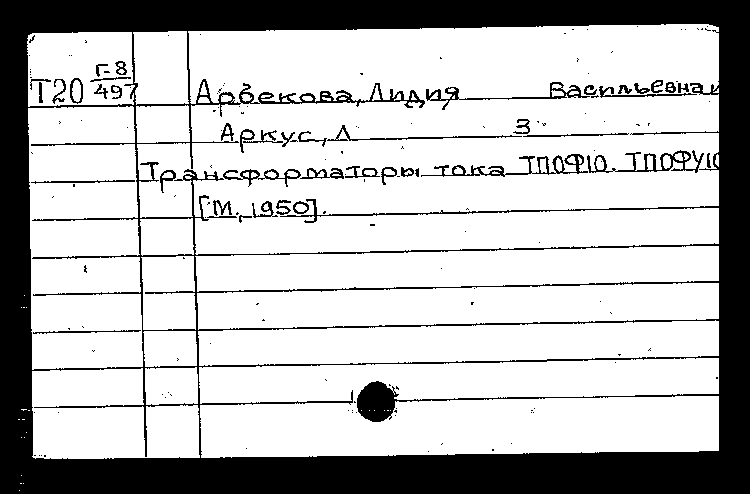 Т20 Г-8/497 Арбекова, Лидия Васильевна и
Аркус, Л З
Трансформаторы тока ТПОФ10. ТПОФУ10
[М., 1950].